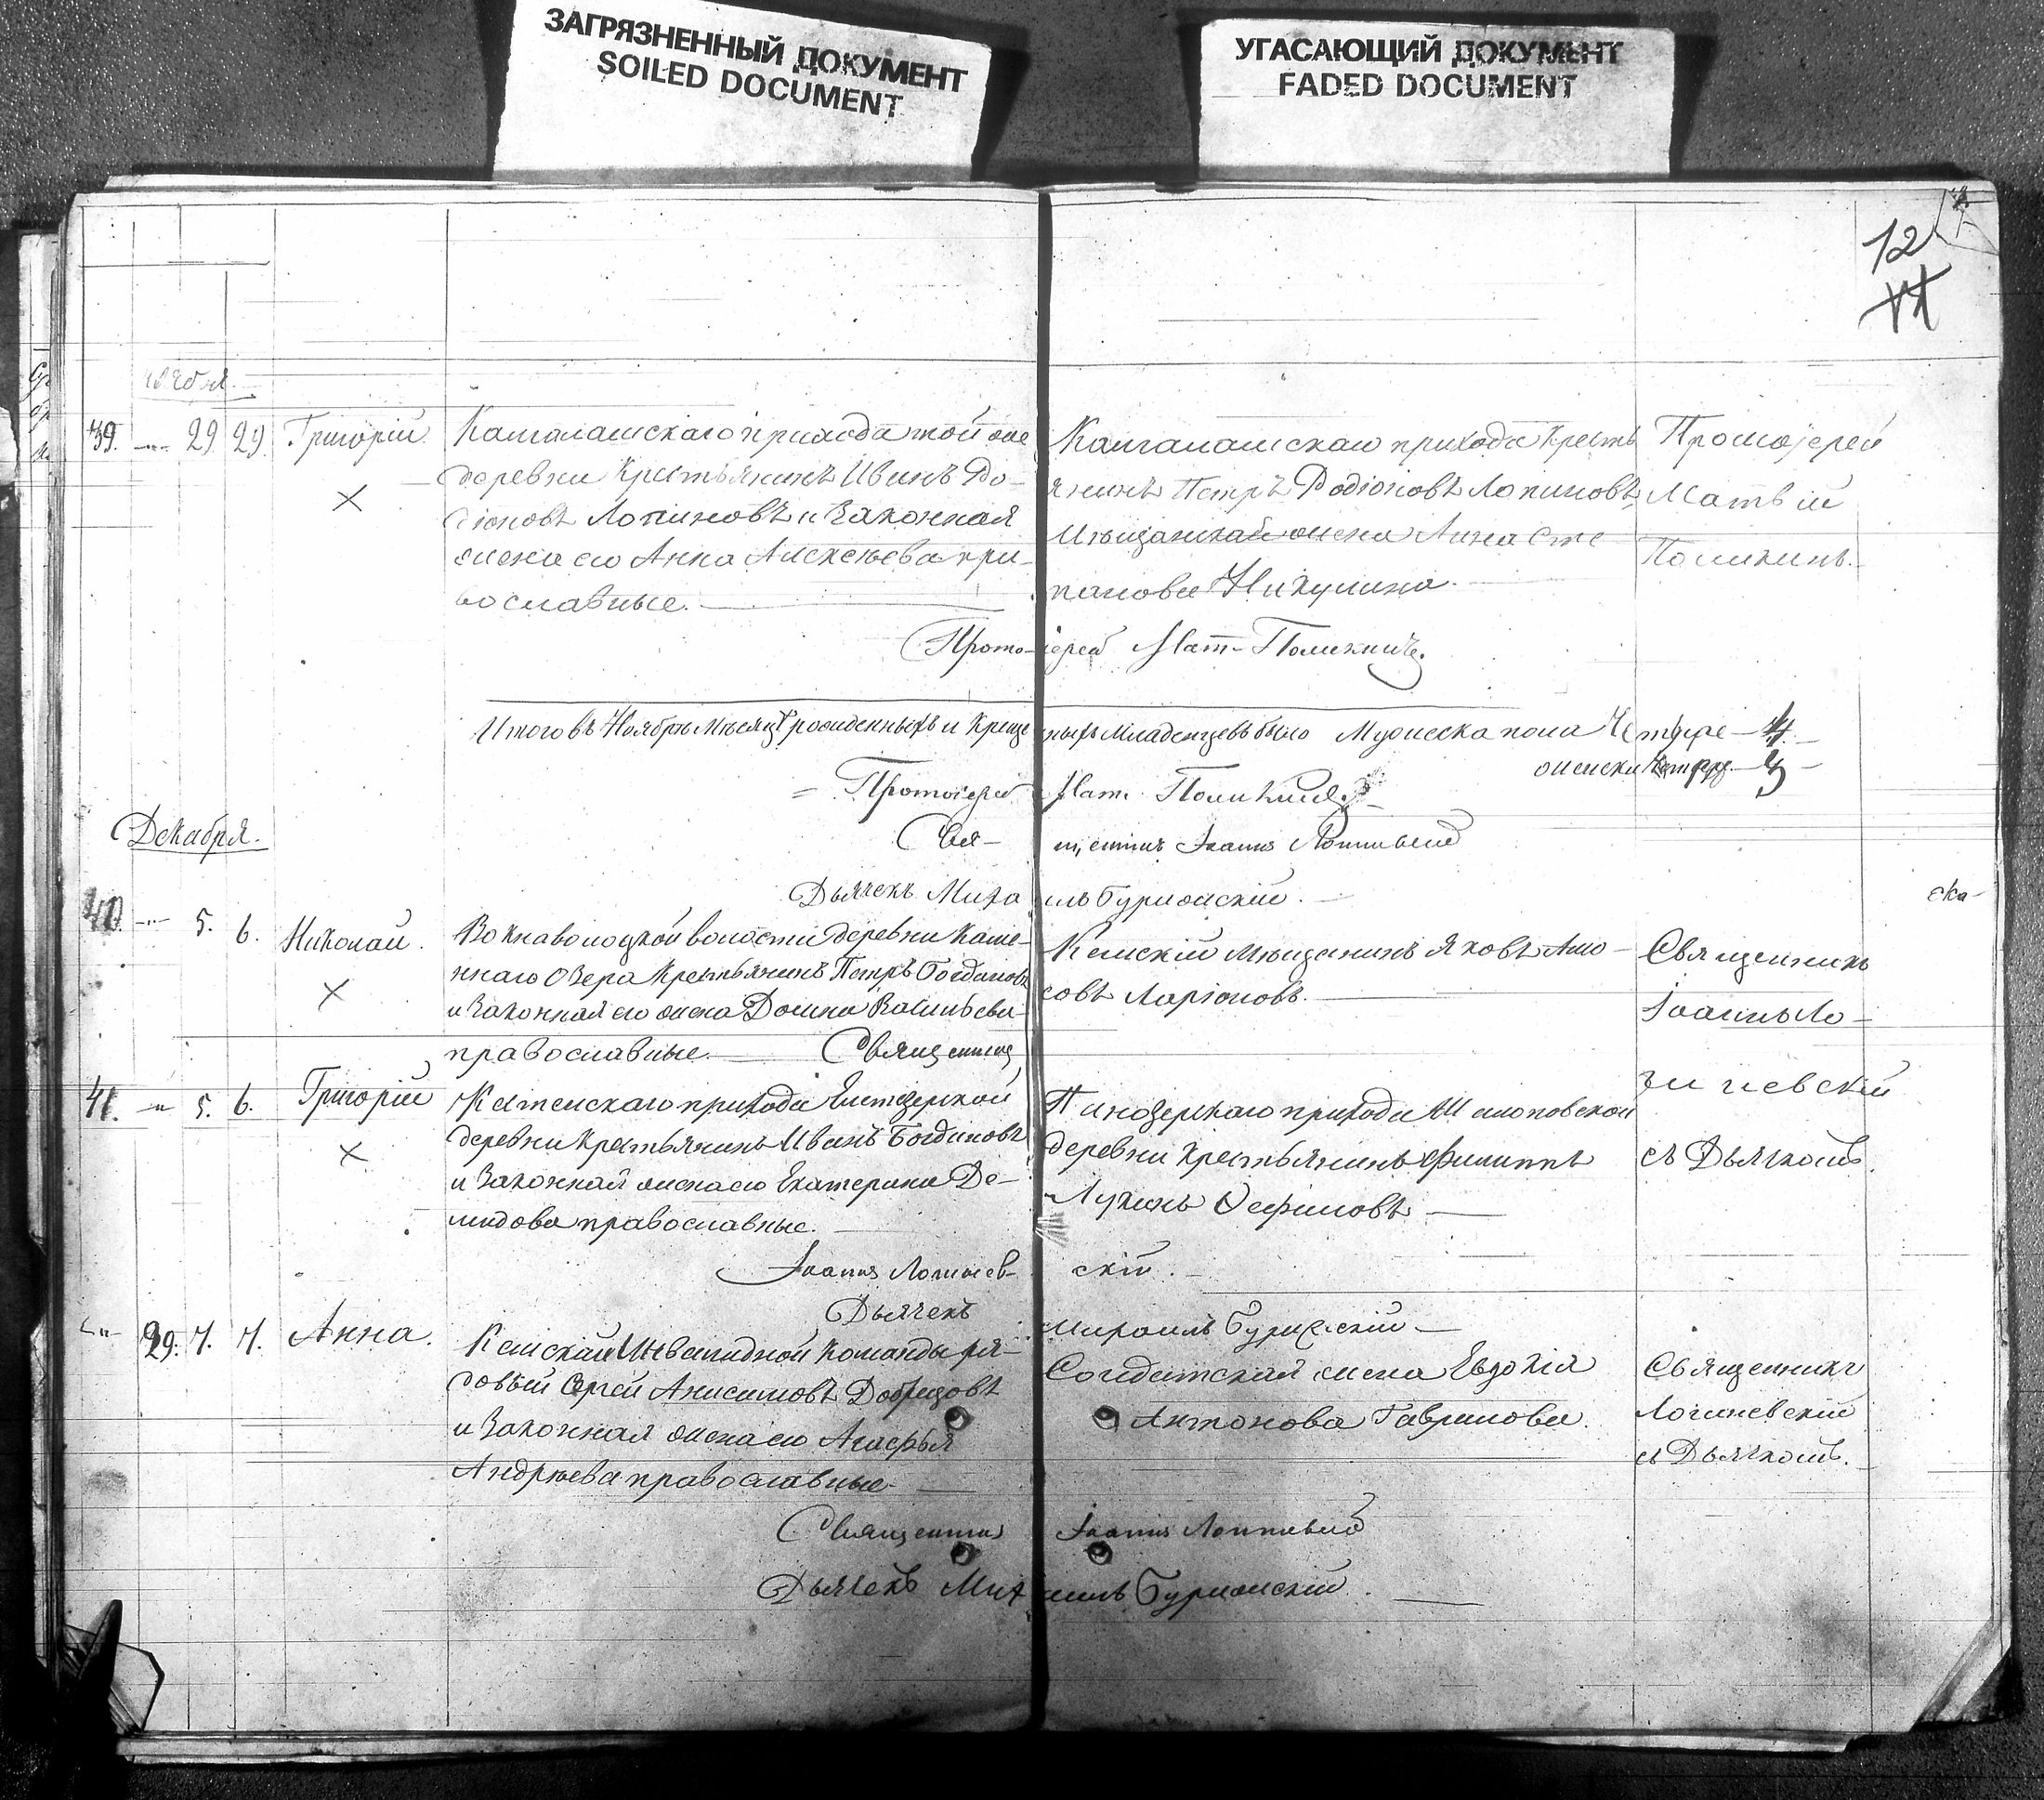 ЗАГРЯЗНЕННЫЙ ДОКУМЕНТ
SOILED DOCUMENT
УГАСАЮЩИЙ ДОКУМЕНТ
FADED DOCUMENT
12
39. 29 29. Григорій.
прихода той же
деревни Крестьянинъ Иванъ Ро-
діоновъ Лопиновъ и Законная
жена его Анна Алексѣева пра-
вославные.
прихода Кресть
янинъ Петръ Родіоновъ Лопиновъ,
Мѣщанская жена Анна Сте
панова Никулина.
Протоіерей
Матвѣй
Поликинъ.
Протоіерей Мат. Поликинъ.
Итого въ Ноябрѣ Мѣсяцѣ рожденныхъ и Крещенныхъ Младенцевъ было Мужеска пола Четыре – 4. –
женска
Протоіерей Мат. Поликинъ
Декабря.
Священникъ Іоаннъ
Дьячекъ Михаилъ
ска-
40. 5. 6. Николай.
Вокнаволоцкой волости деревни Каме-
ннаго Озера Крестьянинъ Петръ Богдановъ
и Законная его жена Домна Васильева
православные. Священникъ
Кемскій Мѣщанинъ Яковъ Амо-
совъ Ларіоновъ.
Священникъ
Іоаннъ Ло-
гиневскій
съ Дьячкомъ.
41. 5. 6. Григорій
прихода
деревни Крестьянинъ Иванъ Богдановъ
и Законная жена его Екатерина Де-
мидова православные.
прихода
деревни Крестьянинъ Филиппъ
Іоаннъ Логинев-
скій.
Дьячекъ
Михаилъ
29. 7. 7. Анна.
Кемской Инвалидной Команды ря-
довый Сергей Анисимовъ
и Законная жена его Агафья
Андрѣева православные
Солдатская жена Евдокія
Антонова Гаврилова.
Священникъ
Логиневскій
съ Дьячкомъ.
Священникъ Іоаннъ
Дьячекъ Михаилъ